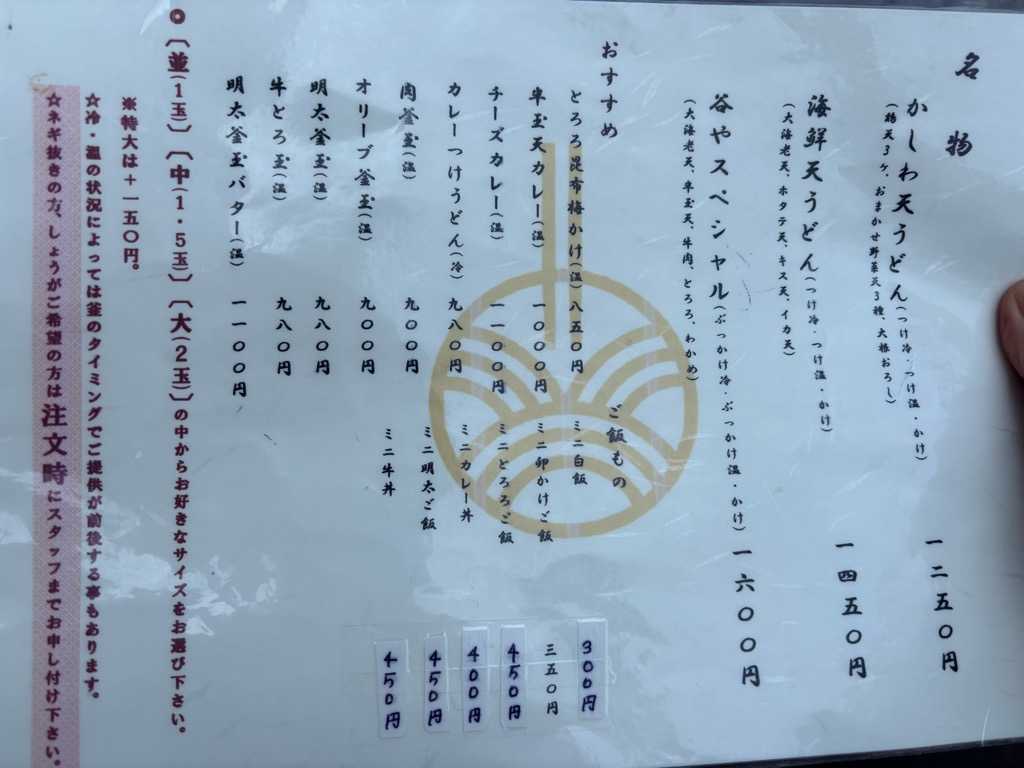 名物
かしわ天うどん(つけ冷・つけ温・かけ) 一二五〇円
(鶏天3ヶ、おまかせ野菜天3種、大根おろし)
海鮮天うどん(つけ冷・つけ温・かけ) 一四五〇円
(大海老天、ホタテ天、キス天、イカ天)
谷やスペシャル(ぶっかけ冷・ぶっかけ温・かけ) 一六〇〇円
(大海老天、半玉天、牛肉、とろろ、わかめ)
おすすめ
とろろ昆布梅かけ(温) 八五〇円
半玉天カレー(温) 一〇〇〇円
チーズカレー(温) 一一〇〇円
カレーつけうどん(冷) 九八〇円
肉釜玉(温) 九〇〇円
オリーブ釜玉(温) 九〇〇円
明太釜玉(温) 九八〇円
牛とろ玉(温) 九八〇円
明太釜玉バター(温) 一一〇〇円
ご飯もの
ミニ白飯 300円
ミニ卵かけご飯 三五〇円
ミニとろろご飯 450円
ミニカレー丼 400円
ミニ明太ご飯 450円
ミニ牛丼 450円
◎〔並(1玉)〕〔中(1・5玉)〕〔大(2玉)〕の中からお好きなサイズをお選び下さい。
※特大は＋一五〇円。
☆冷・温の状況によっては釜のタイミングでご提供が前後する事もあります。
☆ネギ抜きの方、しょうがご希望の方は注文時にスタッフまでお申し付け下さい。